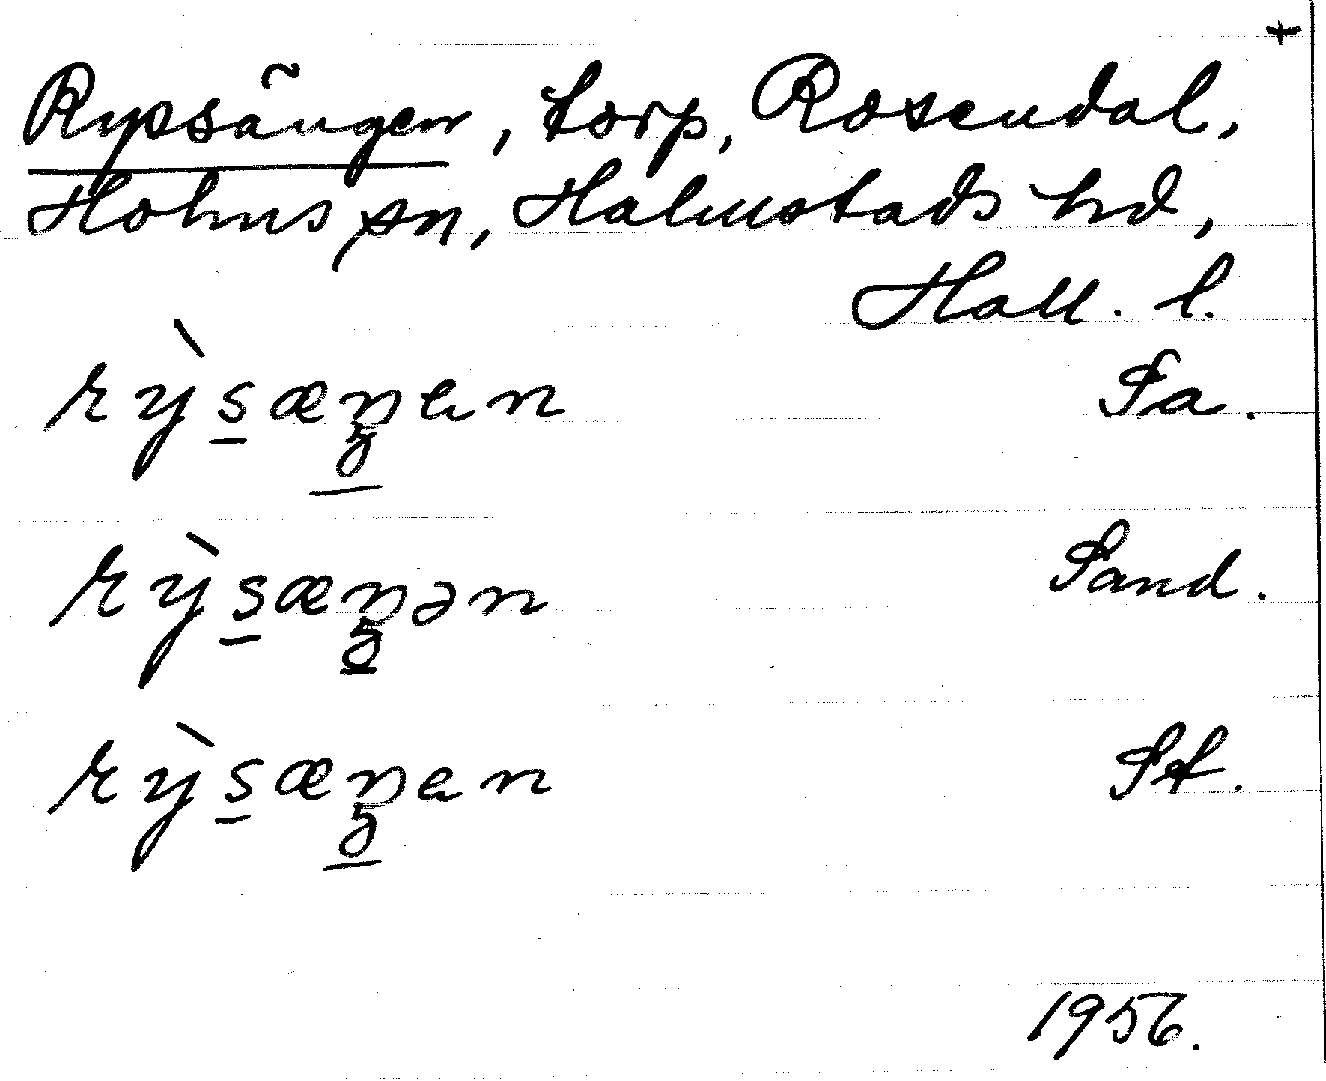 +
Rypsängen, torp, Rosendal,
Holms sn, Halmstads hd,
Hall. l.
rỳsæŋen Fa.
rỳsæŋən Sand.
rỳsæŋen St.
1956.